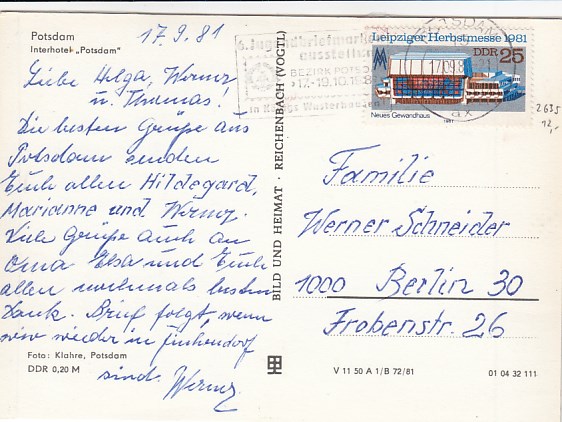 Potsdam
Interhotel „Potsdam"
17.9.81
Liebe Helga, Werner
u. Thomas!
Die besten Grüße aus
Potsdam senden
Euch allen Hildegard,
Marianne und Werner.
Viele Grüße auch an
Oma Elsa und Euch
allen nochmals besten
Dank. Brief folgt, wenn
wir wieder in
sind. Werner
Foto: Klahre, Potsdam
DDR 0,20 M
BILD UND HEIMAT · REICHENBACH (VOGTL)
6. Jugendbriefmarken
ausstellung
BEZIRK POTSDAM
17.-19.10.1981
in Königs Wusterhausen
POTSDAM
17.09.81
Leipziger Herbstmesse 1981
DDR 25
Neues Gewandhaus
1981
2635
12,-
Familie
Werner Schneider
1000 Berlin 30
Frobenstr. 26
V 11 50 A 1/B 72/81
01 04 32 111